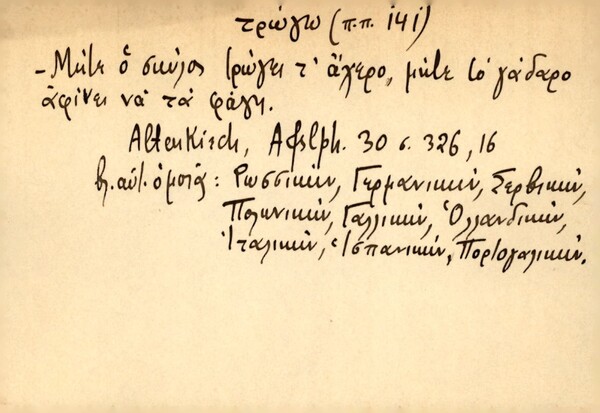 τρώγω (π.π. 141)
- Μήτε ὁ σκύλος τρώγει τ' ἄχερο, μήτε τὸ γάδαρο
ἀφίνει νὰ τὰ φάγῃ.
Altenkirch, Afslph. 30 σ. 326, 16
βλ. αὐτ. ὁμοιά: Ρωσσικήν, Γερμανικήν, Σερβικήν,
Πολωνικήν, Γαλλικήν, Ὁλλανδικήν,
Ἰταλικήν, Ἱσπανικήν, Πορτογαλικήν.